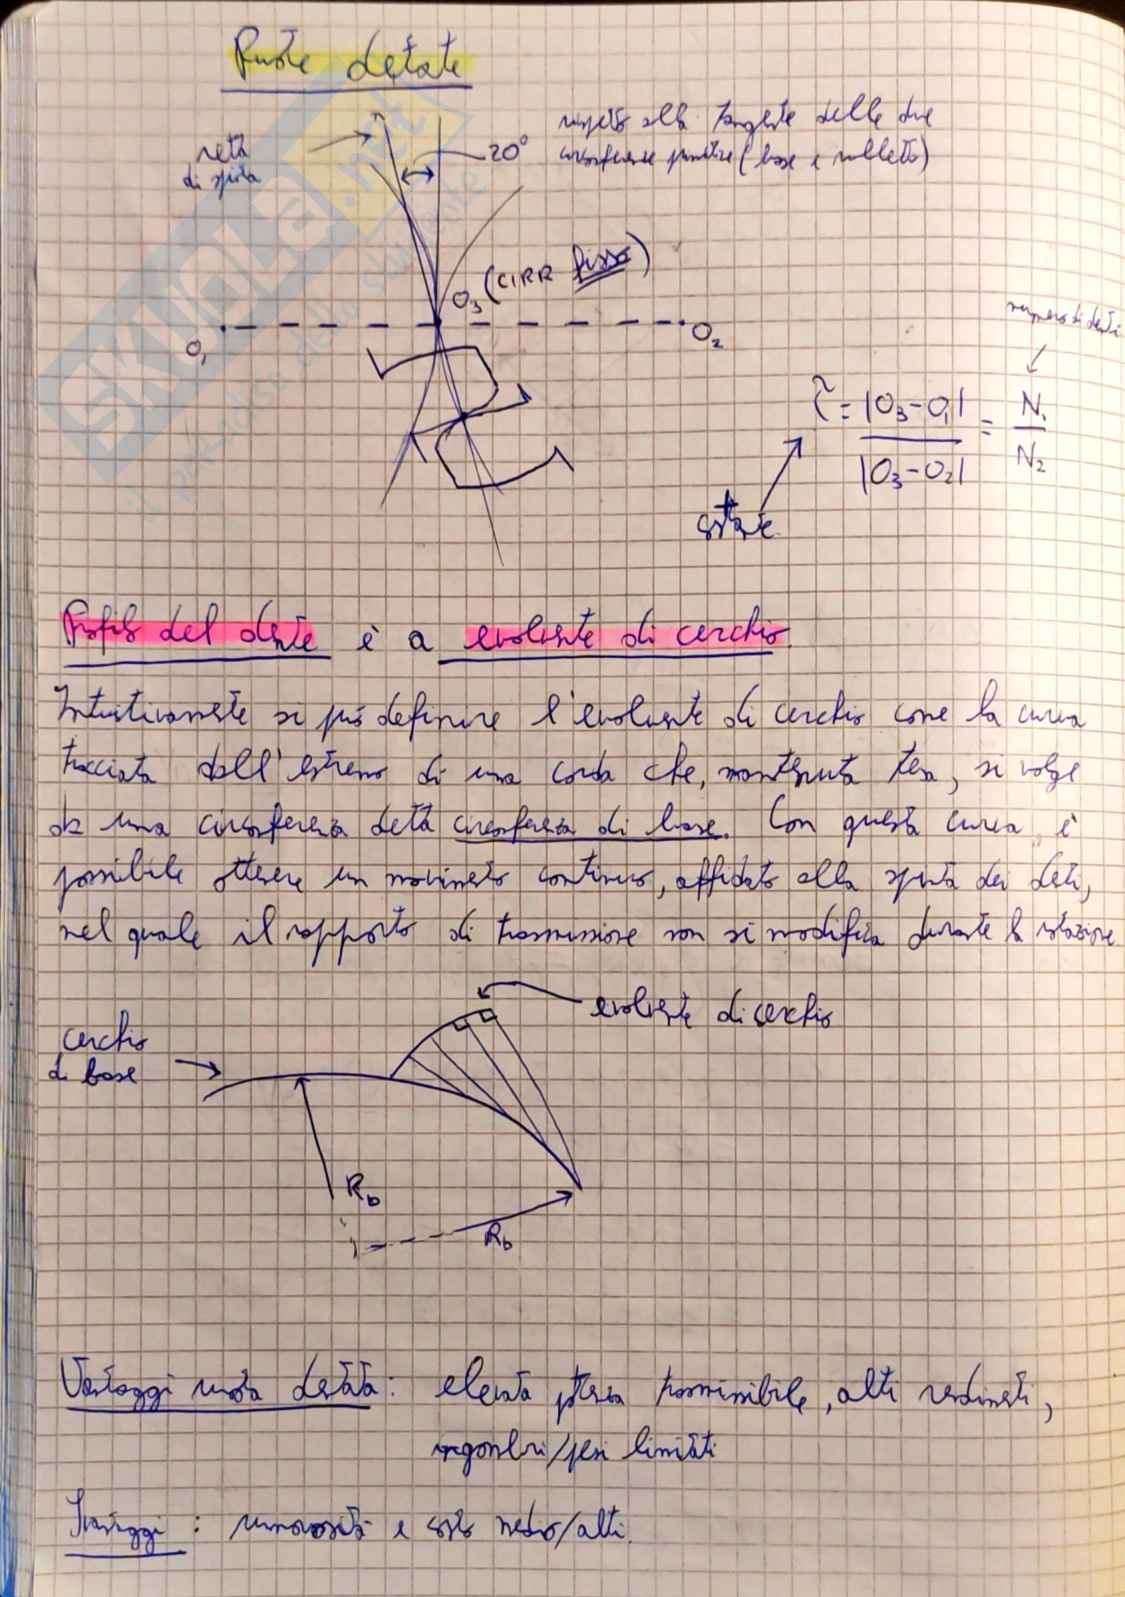 Ruote dentate
retta
di spinta
20°
rispetto alla tangente delle due
circonferenze primitive (base e rulletta)
O₃ (CIRR fisso)
O₁
O₂
numero di denti
τ = |O₃-O₁| / |O₃-O₂| = N₁ / N₂
costante
Profilo del dente è a evolvente di cerchio.
Intuitivamente si può definire l'evolvente di cerchio come la curva
tracciata dall'estremo di una corda che, mantenuta tesa, si volge
da una circonferenza detta circonferenza di base. Con questa curva, è
possibile ottenere un movimento continuo, affidato alla spinta dei denti,
nel quale il rapporto di trasmissione non si modifica durante la rotazione
evolvente di cerchio
cerchio
di base
R_b
R_b
Vantaggi ruota dentata: elevata potenza trasmissibile, alti rendimenti,
ingombri/pesi limitati
Svantaggi: rumorosità e costo medio/alti.
SKUOLA.net